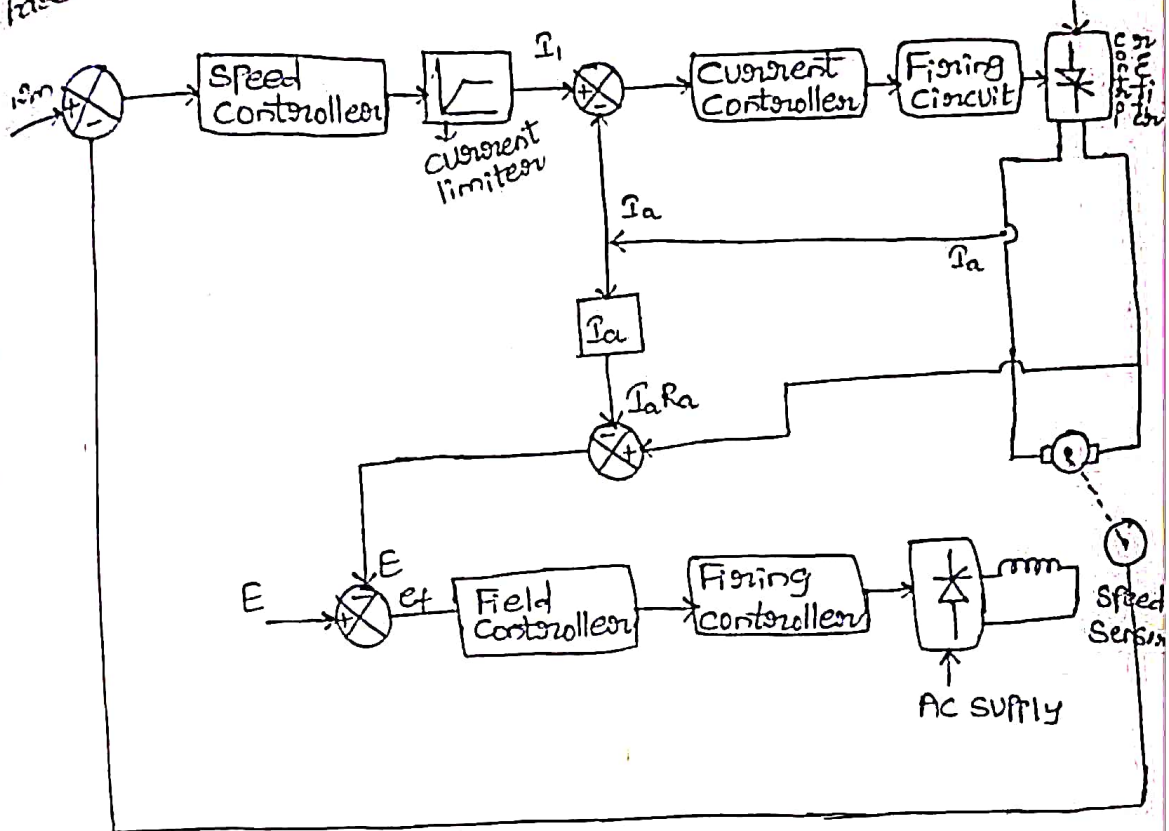 ωm
+
-
Speed
Controller
current
limiter
I1
+
-
Current
Controller
Firing
Circuit
Ia
Ia
Ia
IaRa
-
+
E
E
-
+
ef
Field
Controller
Firing
controller
AC SUPPLY
Speed
Sensor